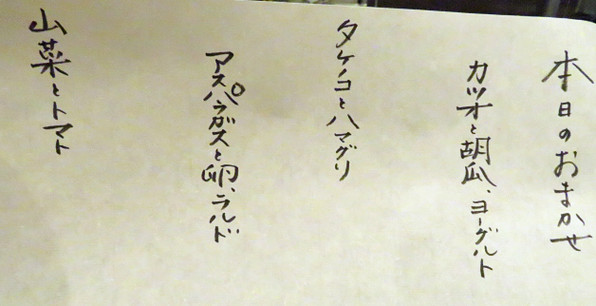 本日のおまかせ
カツオと胡瓜、ヨーグルト
タケノコとハマグリ
アスパラガスと卵、ラルド
山菜とトマト